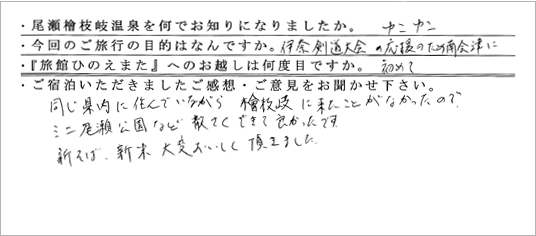 ・尾瀬檜枝岐温泉を何でお知りになりましたか。 ヤフヤフ
・今回のご旅行の目的はなんですか。伊奈剣道大会の応援のため南会津に
・『旅館ひのえまた』へのお越しは何度目ですか。 初めて
・ご宿泊いただきましたご感想・ご意見をお聞かせ下さい。
同じ県内に住んでいながら 檜枝岐に来たことがなかったので
ミニ尾瀬公園など 散てくできて良かったです
新そば、新米 大変おいしく頂きました